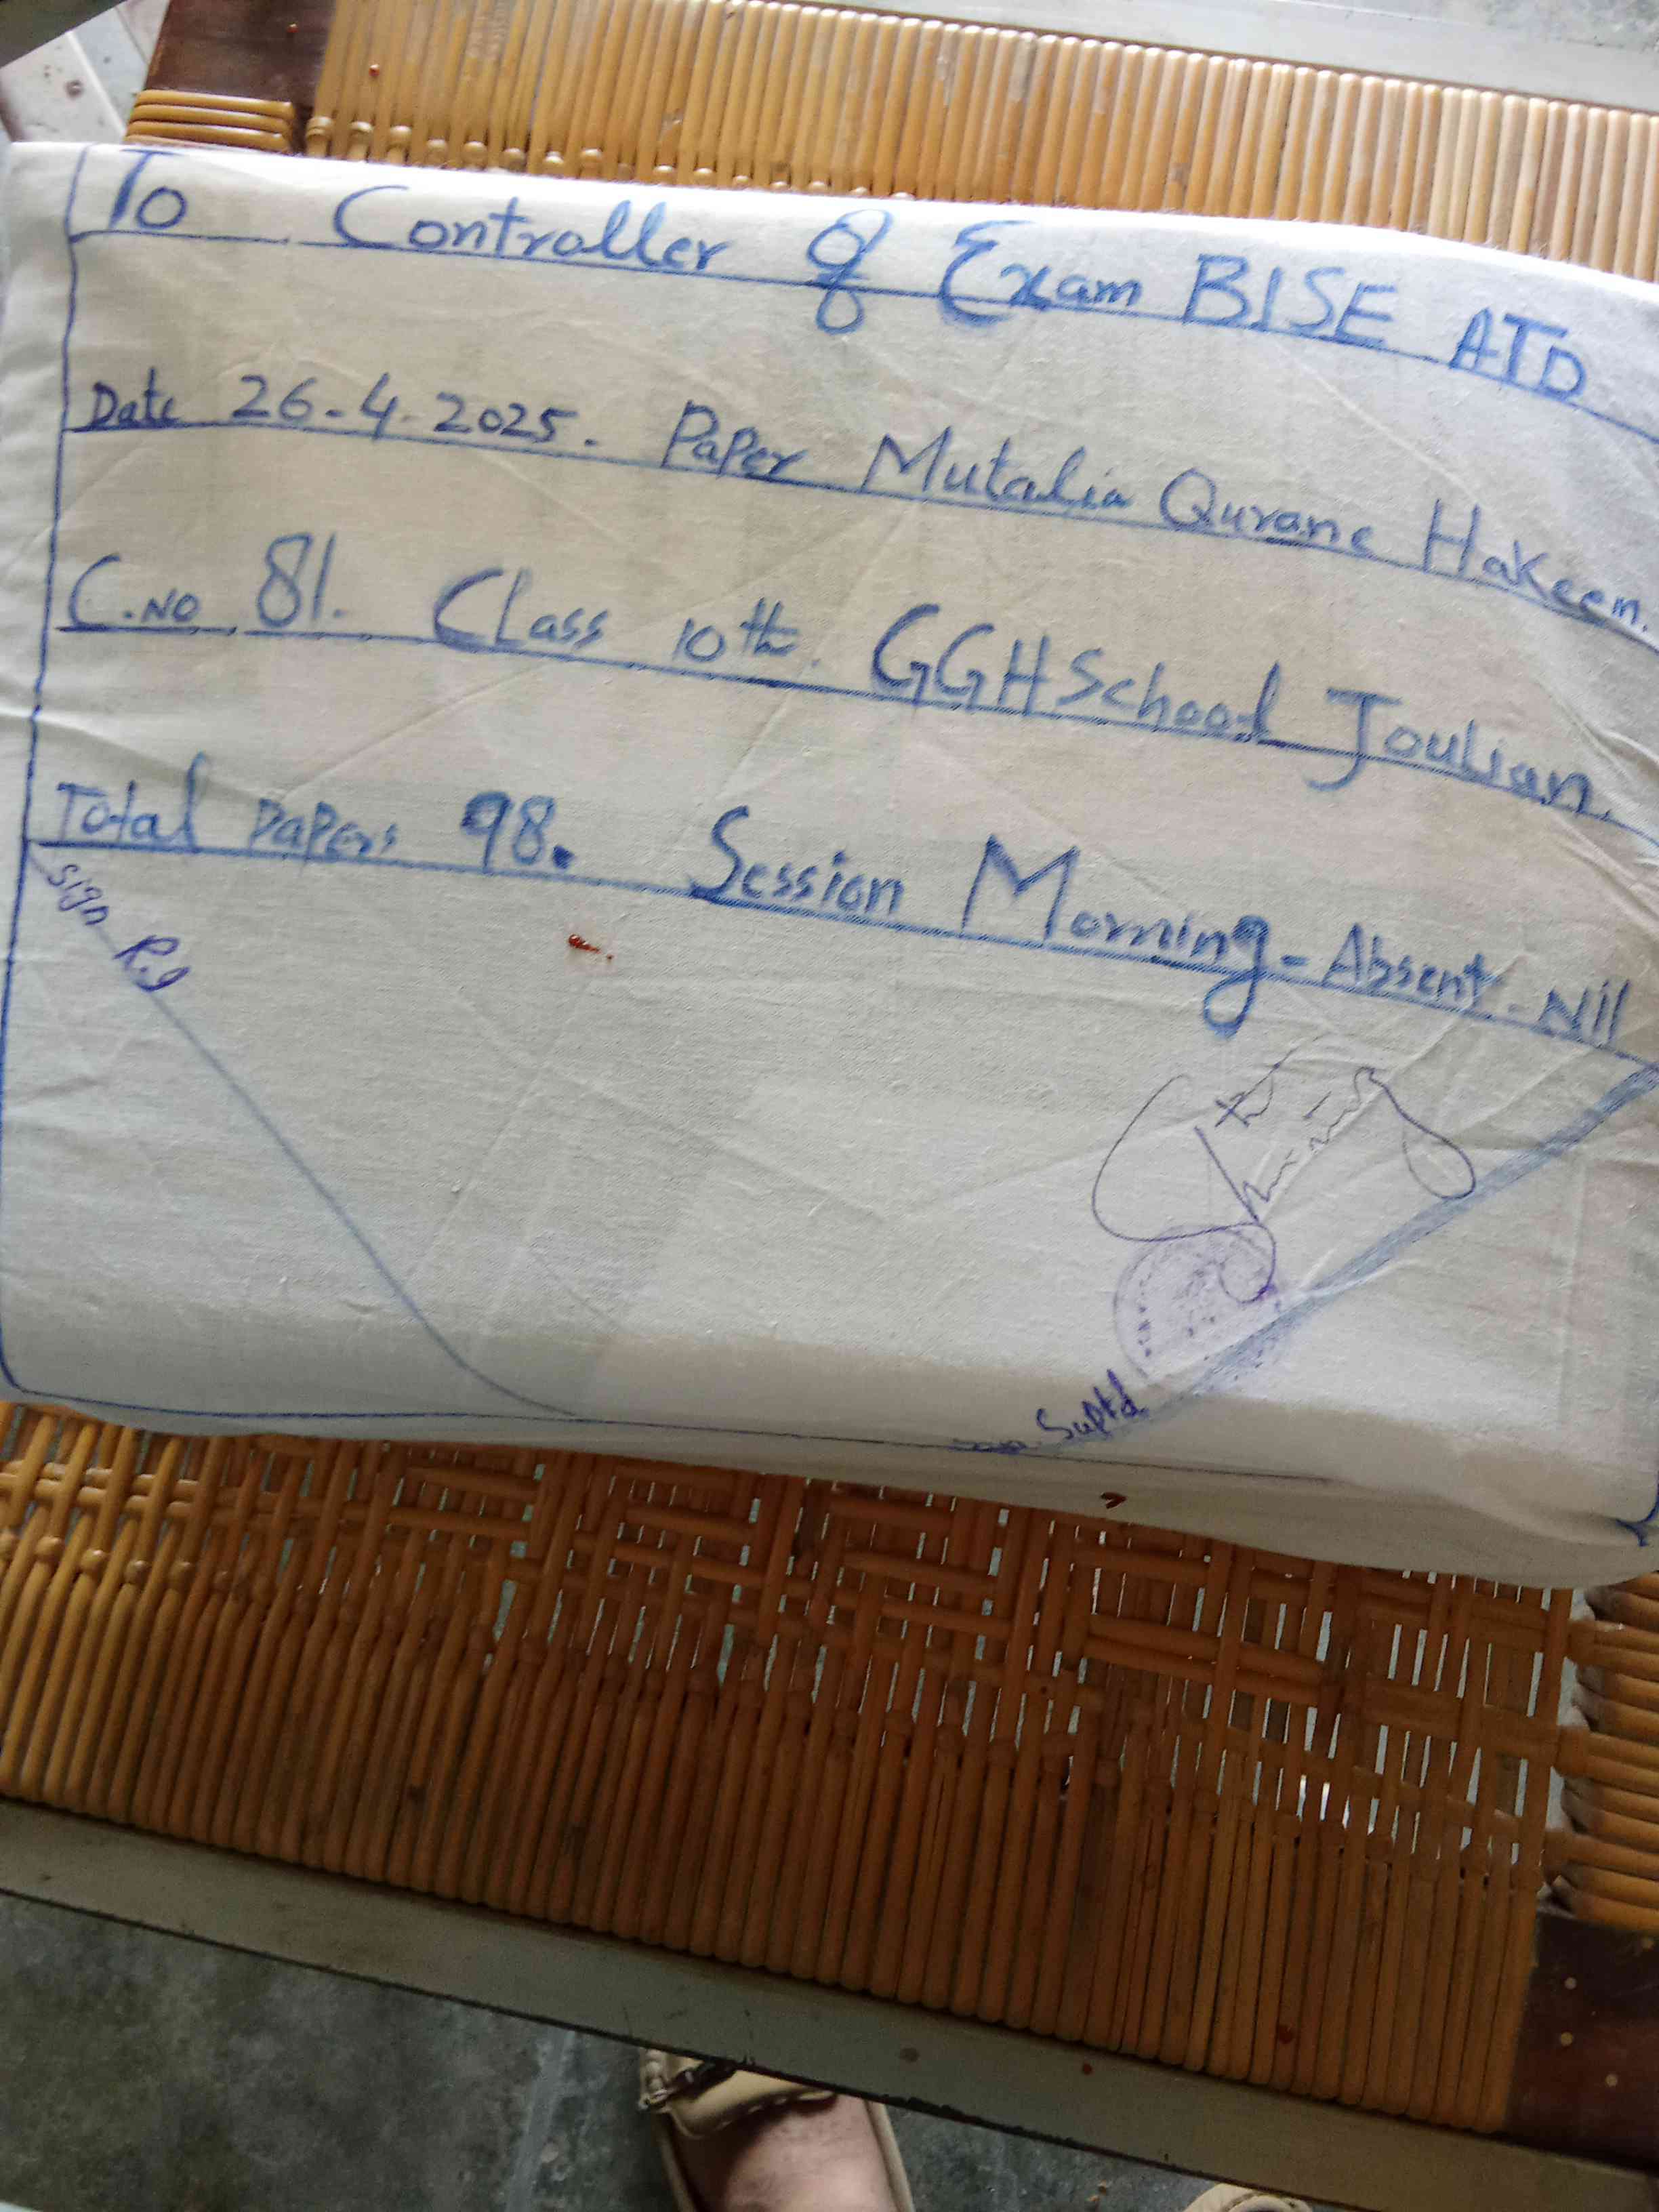 To Controller of Exam BISE ATD
Date 26-4-2025. Paper Mutalia Qurane Hakeem.
C.No 81. Class 10th. GGHSchool Joulian.
Total Papers 98. Session Morning - Absent - Nil
sign R.I
Suptd